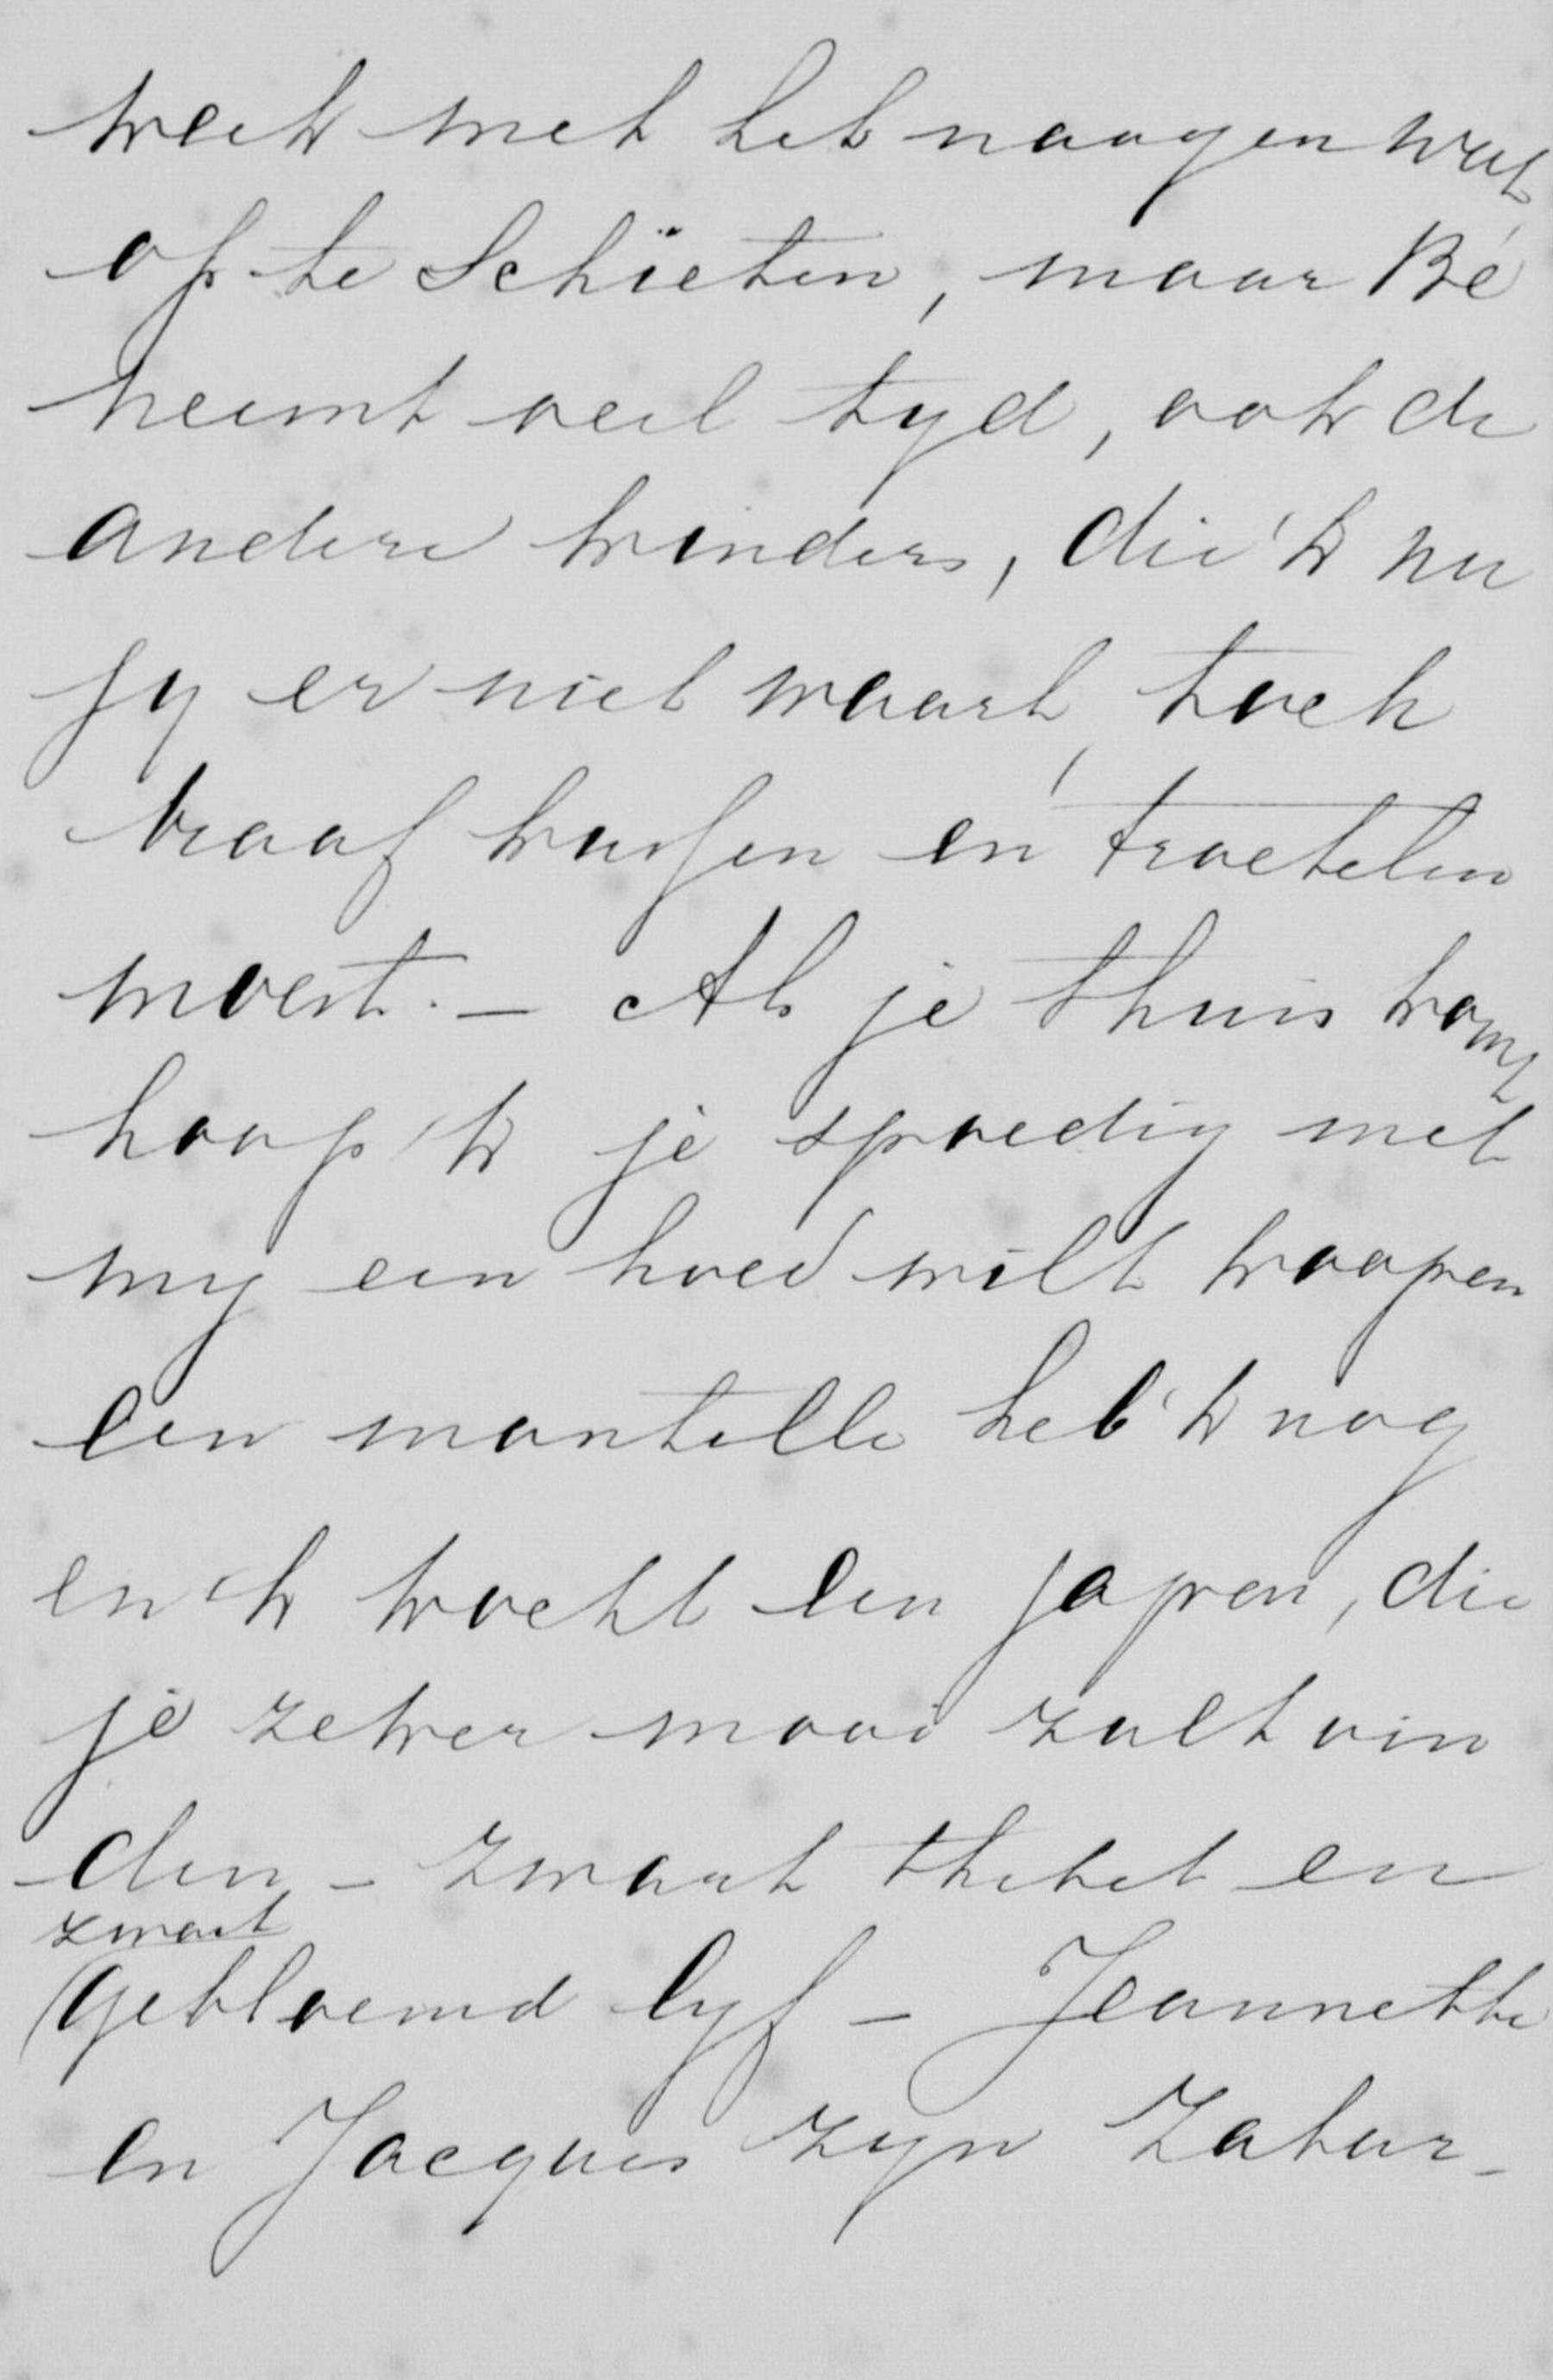 week met het naayen wat
op te schieten, maar Bé
neemt veel tyd, ook de
andere kinders, die 'k nu
jy er niet waart, toch
braaf kussen en troetelen
moest. - Als je thuis komt
hoop 'k je spoedig met
my een hoed wilt koopen
een mantille heb 'k nog
en 'k kocht een japon, die
je zeker mooi zult vin
den - zwart thibet en
zwart
gebloemd lyf - Jeannette
en Jacques zyn Zatur-